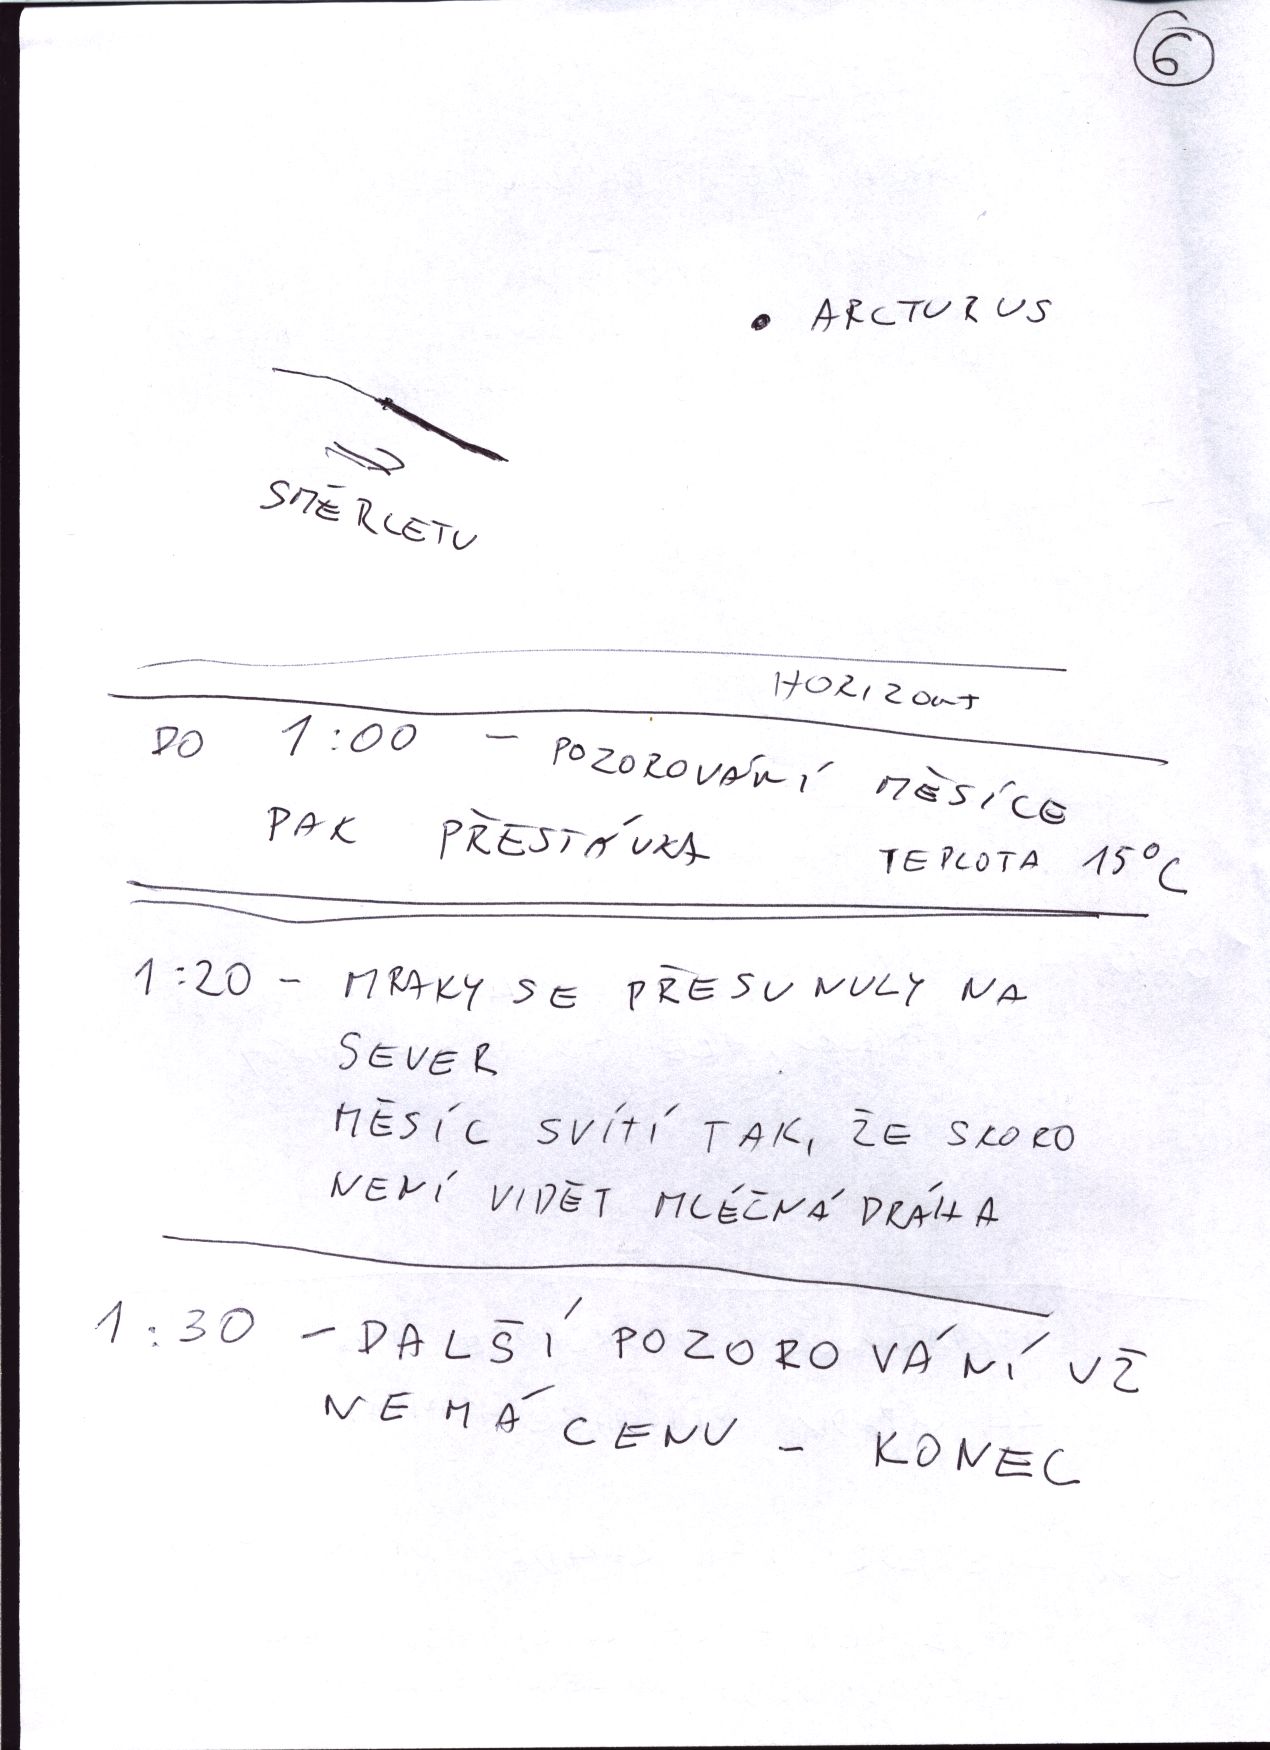 6
ARCTURUS
SMĚR LETU
HORIZONT
DO 1:00 - POZOROVÁNÍ MĚSÍCE
PAK PŘESTÁVKA TEPLOTA 15°C
1:20 - MRAKY SE PŘESUNULY NA
SEVER
MĚSÍC SVÍTÍ TAK, ŽE SKORO
NENÍ VIDĚT MLÉČNÁ DRÁHA
1:30 - DALŠÍ POZOROVÁNÍ UŽ
NEMÁ CENU - KONEC